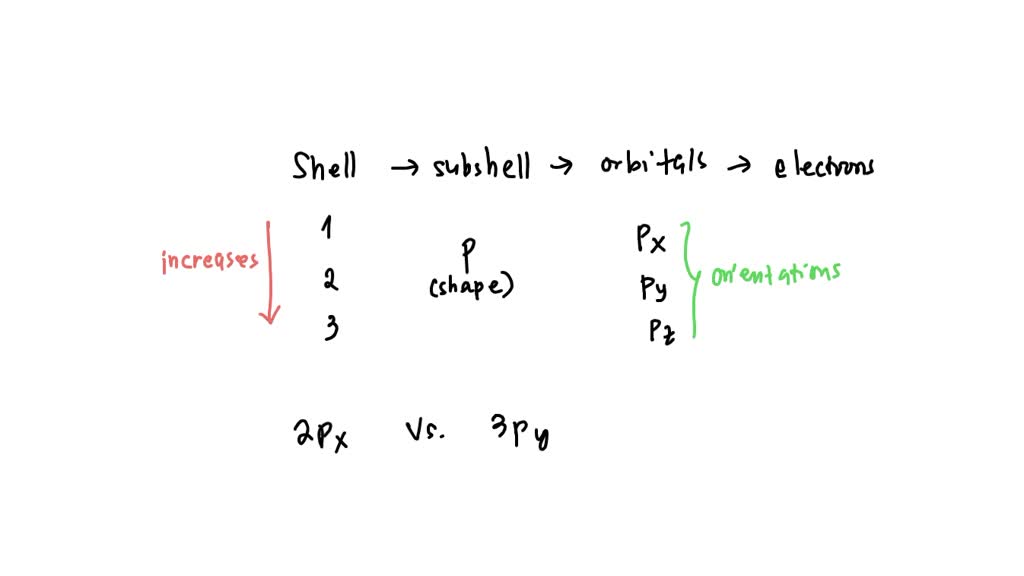 Shell → subshell → orbitals → electrons
increases
1
2
3
P
(shape)
Px
Py
Pz
orientations
2Px vs. 3Py